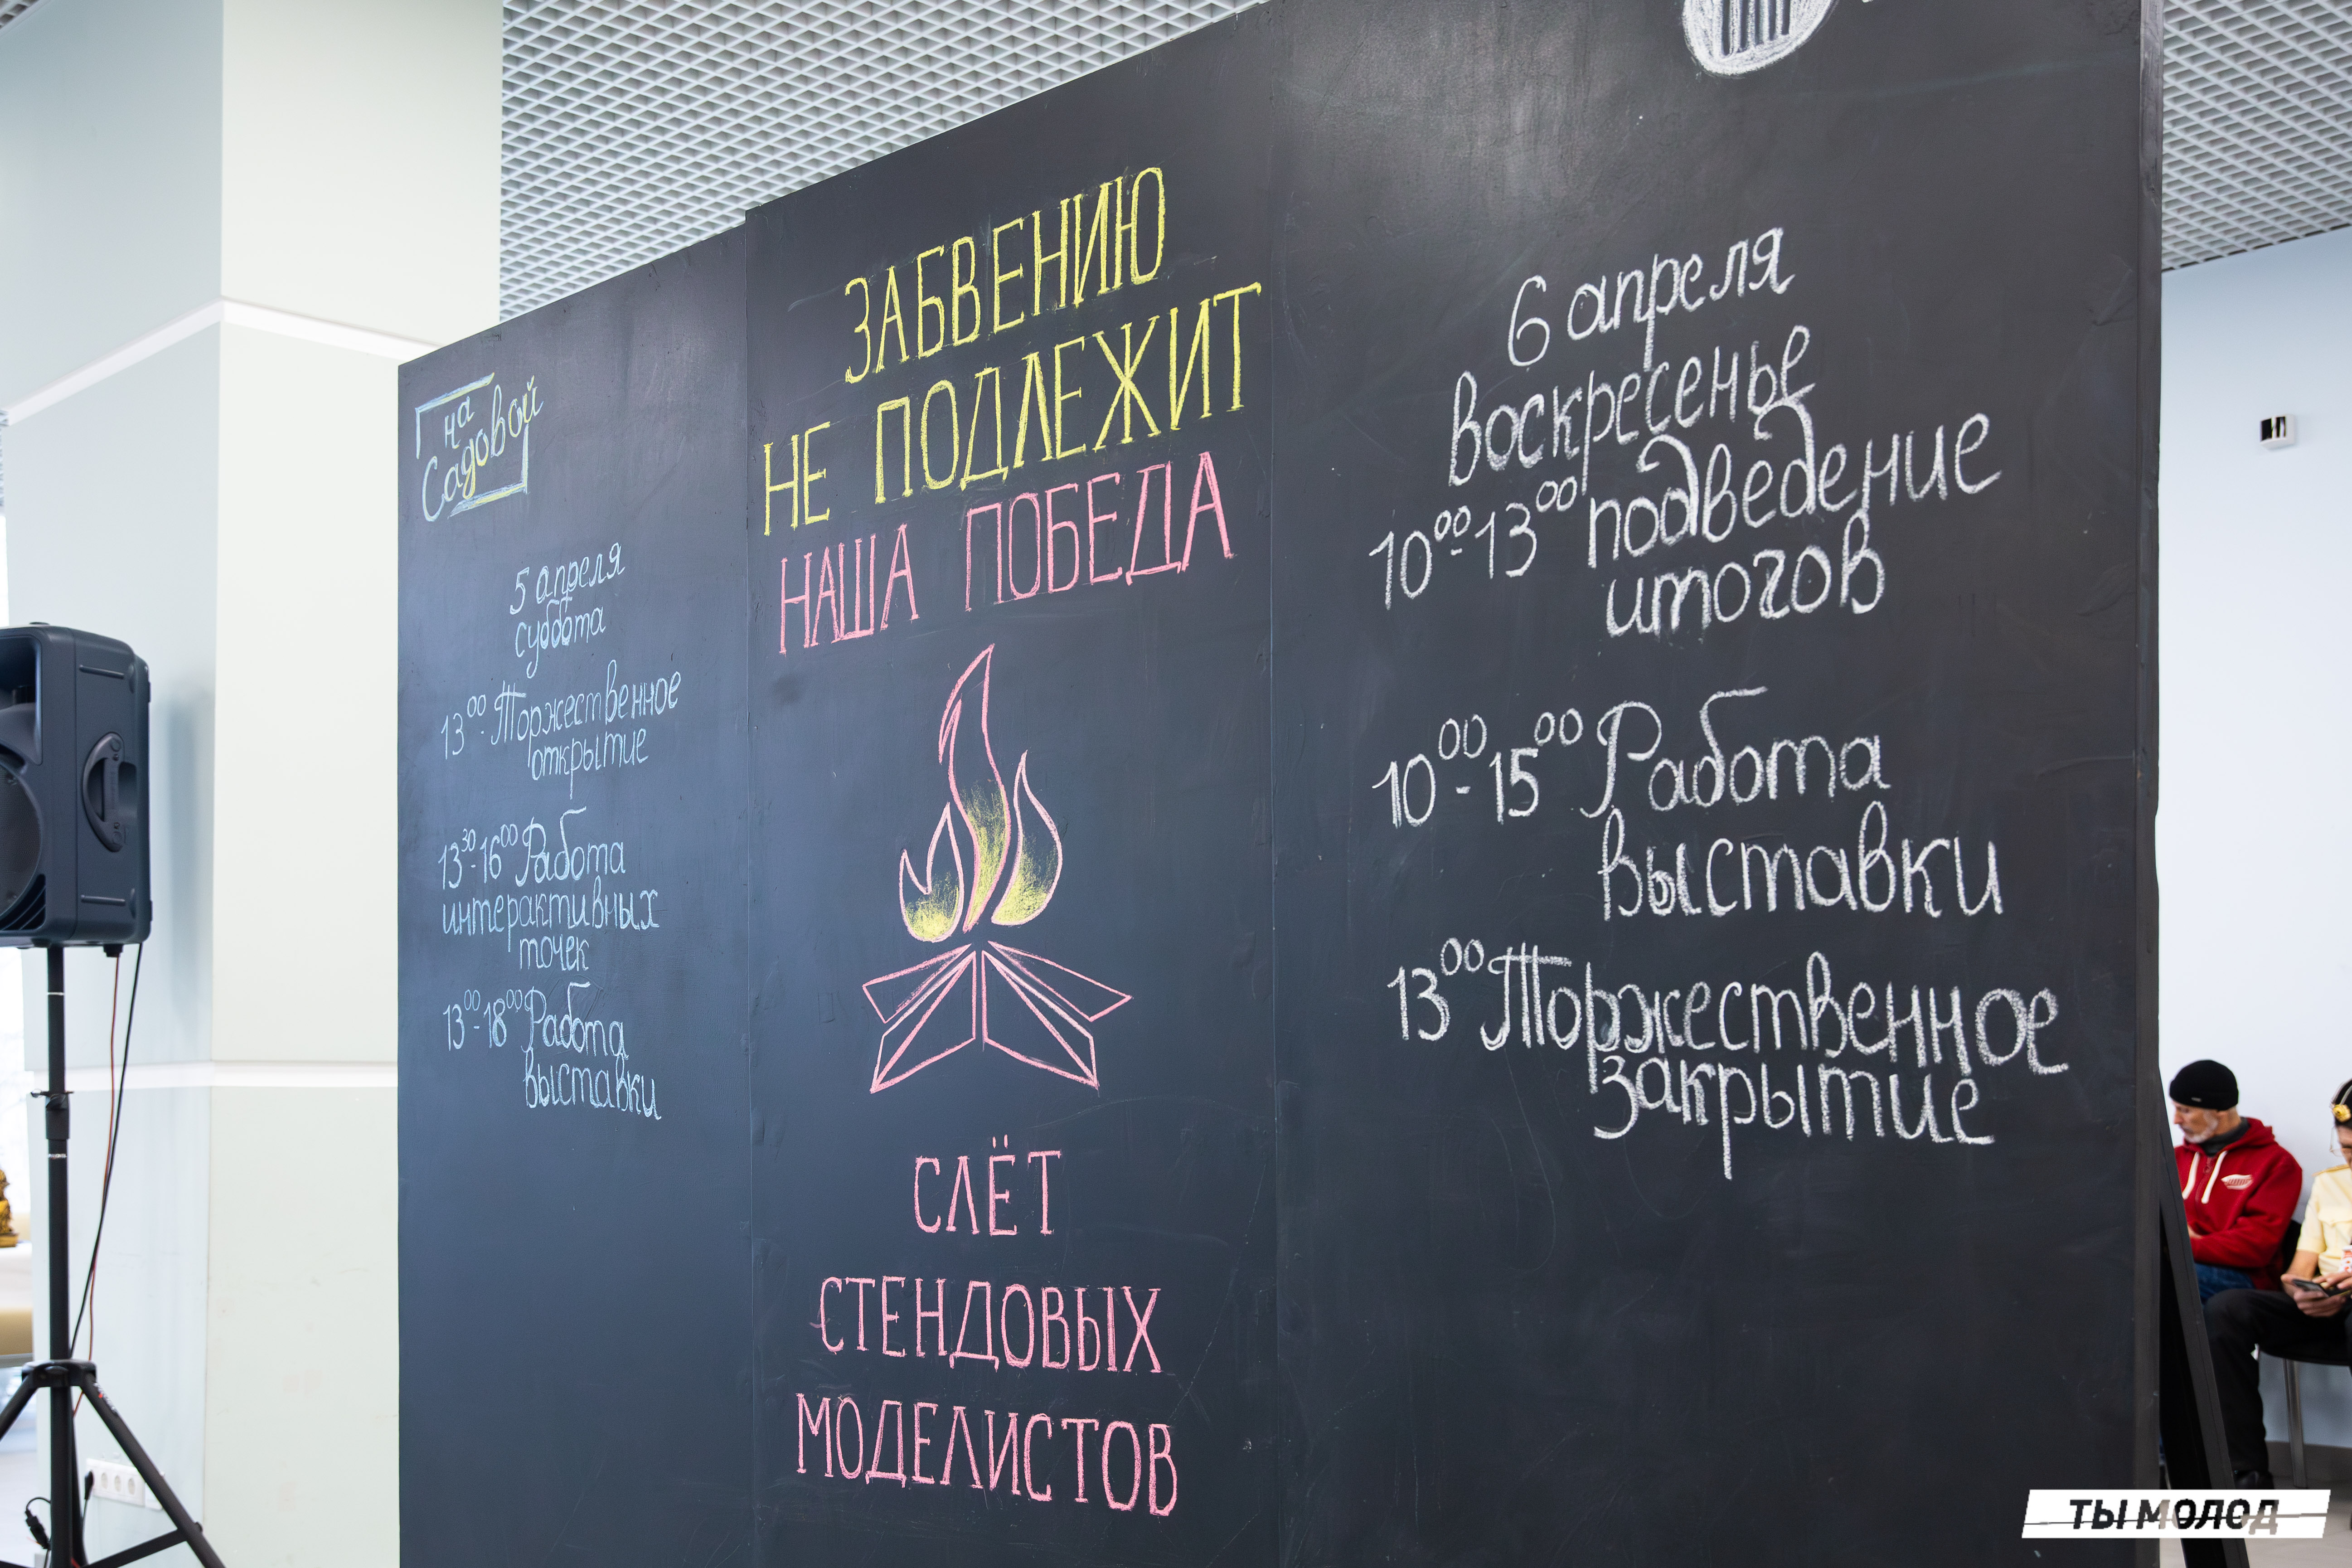 на
Садовой
5 апреля
суббота
13⁰⁰-Торжественное
открытие
13³⁰-16⁰⁰ Работа
интерактивных
точек
13⁰⁰-18⁰⁰ Работа
выставки
ЗАБВЕНИЮ
НЕ ПОДЛЕЖИТ
НАША ПОБЕДА
СЛЁТ
СТЕНДОВЫХ
МОДЕЛИСТОВ
6 апреля
воскресенье
10⁰⁰-13⁰⁰ подведение
итогов
10⁰⁰-15⁰⁰ Работа
выставки
13⁰⁰ Торжественное
закрытие
ТЫ МОЛОД